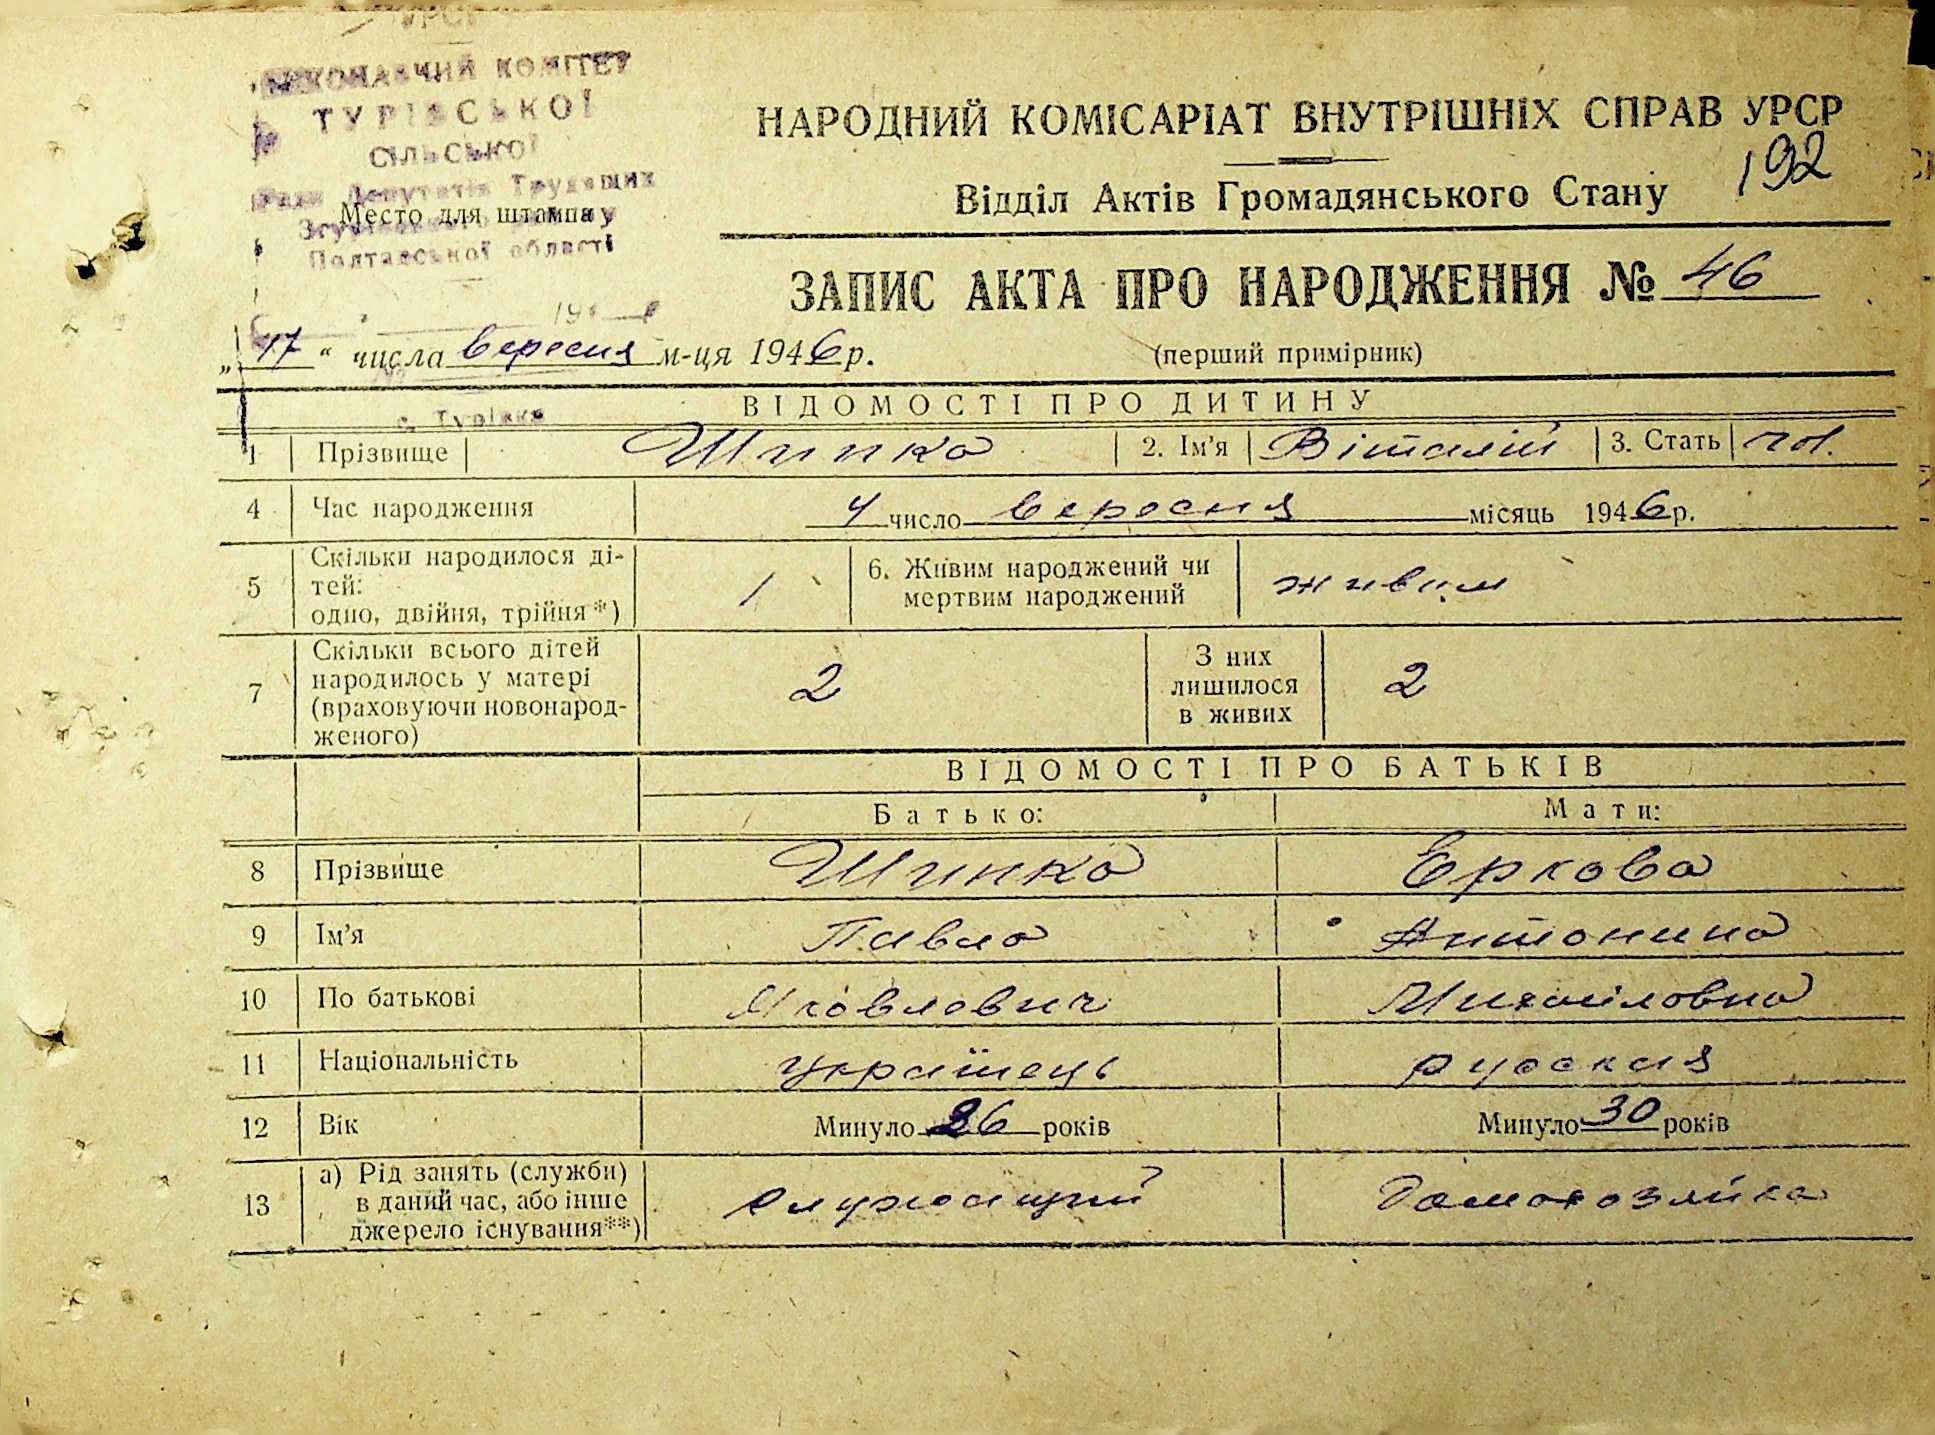 УРСР
ВИКОНАВЧИЙ КОМІТЕТ
ТУРІВСЬКОЇ
СІЛЬСЬКОЇ
Ради Депутатів Трудящих
Згурівського району
Место для штампа
Полтавської області
с. Турівка
НАРОДНИЙ КОМІСАРІАТ ВНУТРІШНІХ СПРАВ УРСР
192
Відділ Актів Громадянського Стану
ЗАПИС АКТА ПРО НАРОДЖЕННЯ № 46
„17“ числа вересня м-ця 1946 р.
(перший примірник)
ВІДОМОСТІ ПРО ДИТИНУ
1 Прізвище Шипко 2. Ім'я Віталій 3. Стать чол.
4 Час народження 4 число вересня місяць 1946 р.
5 Скільки народилося ді-
тей:
одно, двійня, трійня*) 1
6. Живим народжений чи
мертвим народжений живим
7 Скільки всього дітей
народилось у матері
(враховуючи новонарод-
женого) 2
З них
лишилося
в живих 2
ВІДОМОСТІ ПРО БАТЬКІВ
Батько: Мати:
8 Прізвище Шипко
9 Ім'я Павло Антонина
10 По батькові Яковлевич Михайловна
11 Національність українець русская
12 Вік Минуло 36 років Минуло 30 років
13 а) Рід занять (служби)
в даний час, або інше
джерело існування**) служащий Домохозяйка